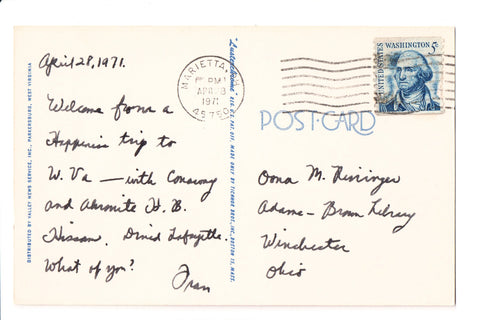 April 28, 1971.
Welcome from a
Happenin trip to
W. Va — with
and H. B.
Hissam. Dined Lafayette.
What of you?
Fran
DISTRIBUTED BY VALLEY NEWS SERVICE, INC., PARKERSBURG, WEST VIRGINIA
MARIETTA, OH
PM
APR 28
1971
45750
REG. U.S. PAT. OFF. MADE ONLY BY TICHNOR BROS., INC., BOSTON 15, MASS.
UNITED STATES
WASHINGTON 5c
POST CARD
Oona M.
Adams - Brown Library
Winchester
Ohio